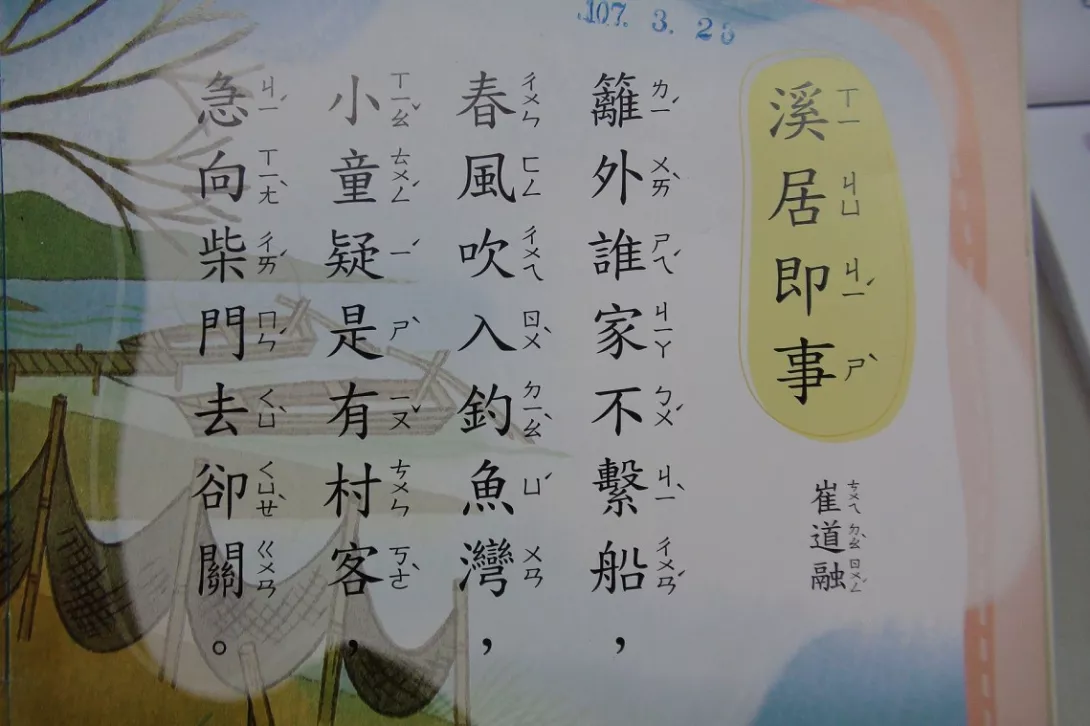 107. 3. 26
溪居即事
崔道融
籬外誰家不繫船，
春風吹入釣魚灣，
小童疑是有村客，
急向柴門去卻關。
ㄒㄧ ㄐㄩ ㄐㄧˊ ㄕˋ
ㄘㄨㄟ ㄉㄠˋ ㄖㄨㄥˊ
ㄌㄧˊ ㄨㄞˋ ㄕㄟˊ ㄐㄧㄚ ㄅㄨˊ ㄐㄧˋ ㄔㄨㄢˊ
ㄔㄨㄣ ㄈㄥ ㄔㄨㄟ ㄖㄨˋ ㄉㄧㄠˋ ㄩˊ ㄨㄢ
ㄒㄧㄠˇ ㄊㄨㄥˊ ㄧˊ ㄕˋ ㄧㄡˇ ㄘㄨㄣ ㄎㄜˋ
ㄐㄧˊ ㄒㄧㄤˋ ㄔㄞˊ ㄇㄣˊ ㄑㄩˋ ㄑㄩㄝˋ ㄍㄨㄢ